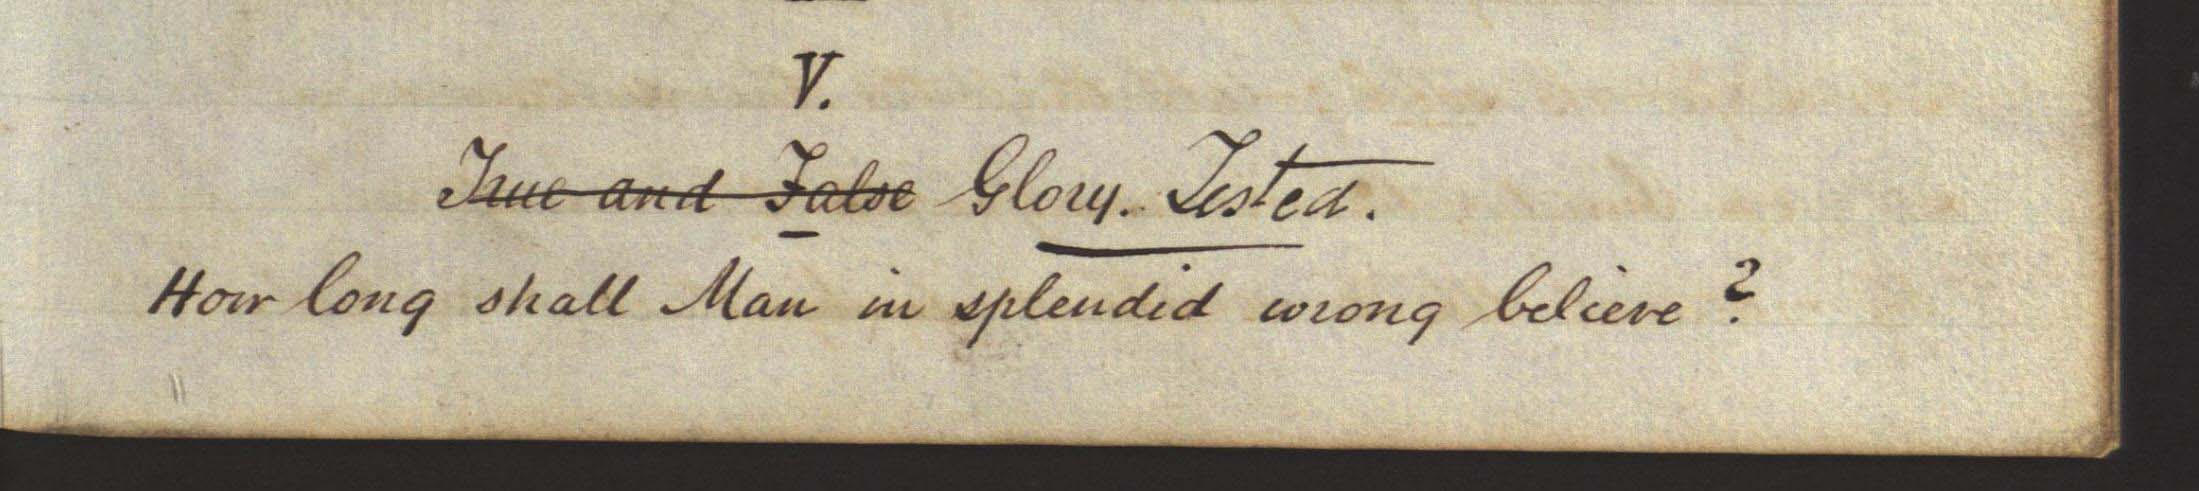 V.
True and False Glory. Tested.
How long shall Man in splendid wrong believe?